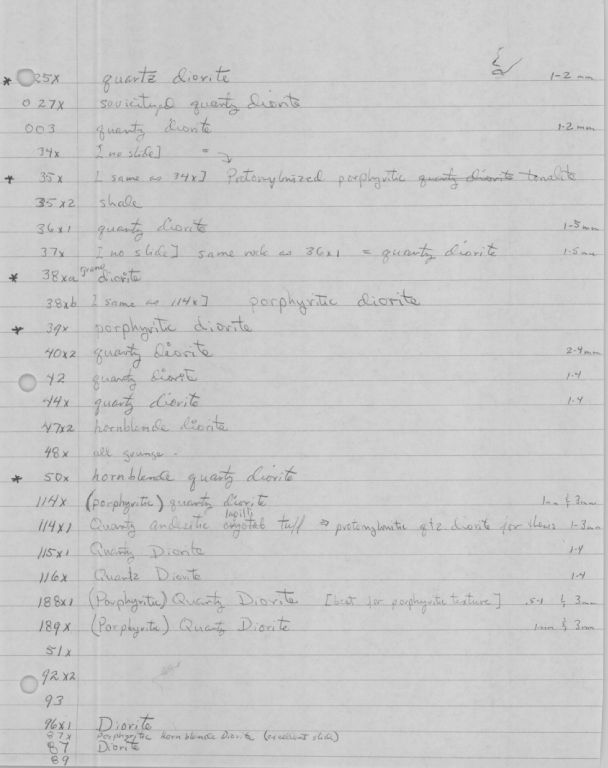 * 25x quartz diorite 1-2 mm
027x quartz diorite
003 quartz diorite 1-2 mm
34x [no slide] =
* 35x [same as 34x] Protomylonized porphyritic quartz diorite tonalite
35x2 shale
36x1 quartz diorite 1-3mm
37x [no slide] same rock as 36x1 = quartz diorite 1-5mm
* 38xa grano diorite
38xb [same as 114x] porphyritic diorite
* 39x porphyritic diorite
40x2 quartz diorite 2-4mm
42 quartz diorite 1-4
44x quartz diorite 1-4
47x2 hornblende diorite
48x all
* 50x hornblende quartz diorite
114x (porphyritic) quartz diorite 1mm & 3mm
114x1 Quartz andesitic crystal lapilli tuff => protomylonitic qtz diorite for 1-3mm
115x1 Quartz Diorite 1-4
116x Quartz Diorite 1-4
188x1 (Porphyritic) Quartz Diorite [best for porphyritic texture] .5-1 & 3mm
189x (Porphyritic) Quartz Diorite 1mm & 3mm
51x
92x2
93
96x1 Diorite
87x porphyritic hornblende Diorite (excellent slide)
87 Diorite
89